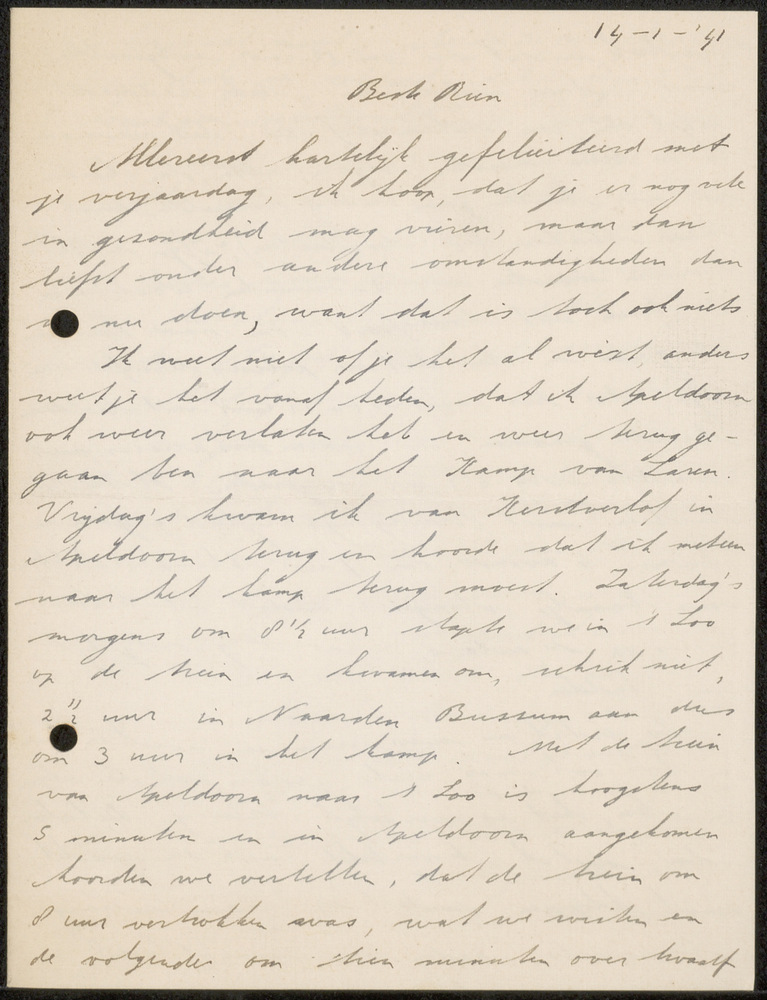 14-1-'41
Beste Rien
Allereerst hartelijk gefeliciteerd met
je verjaardag, ik hoop, dat je er nog vele
in gezondheid mag vieren, maar dan
liefst onder andere omstandigheden dan
nu doen, want dat is toch ook niets
Ik weet niet of je het al wist, anders
weet je het vanaf heden, dat ik Apeldoorn
ook weer verlaten heb en weer terug ge-
gaan ben naar het Kamp van Laren.
Vrijdag's kwam ik van Kerstverlof in
Apeldoorn terug en hoorde dat ik meteen
naar het kamp terug moest. Zaterdag's
morgens om 8 1/2 uur stapte we in 't Loo
op de trein en kwamen om, schrik niet,
2 1/2 uur in Naarden Bussum aan dus
om 3 uur in het kamp. Met de trein
van Apeldoorn naar 't Loo is hoogstens
5 minuten en in Apeldoorn aangekomen
hoorden we vertellen, dat de trein om
8 uur vertrokken was, wat we wisten en
de volgende om tien minuten over twaalf